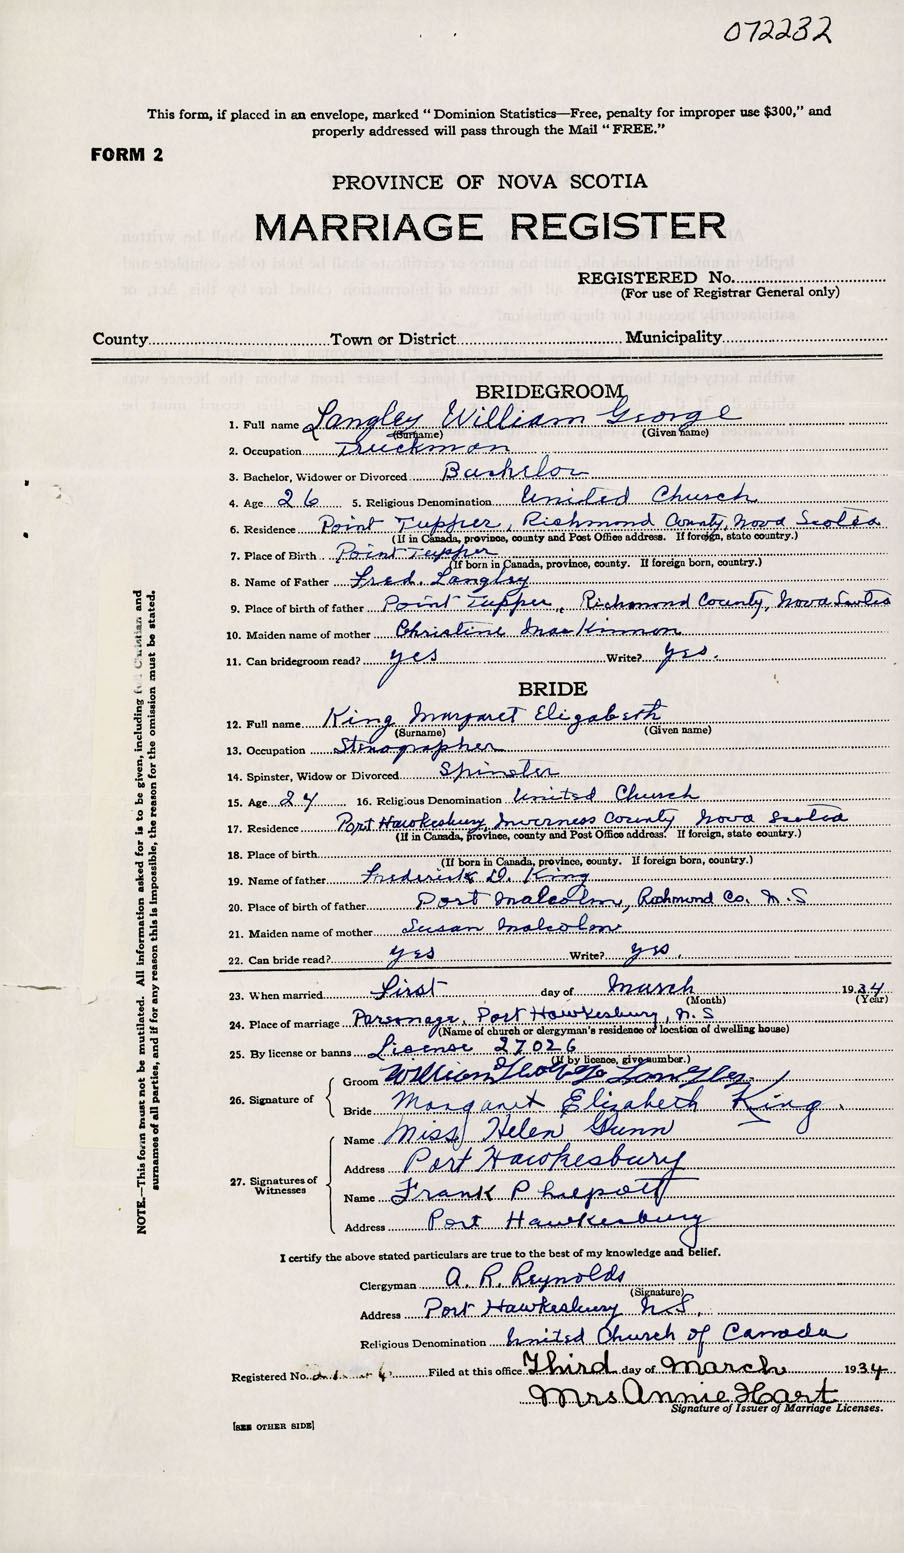 072232
This form, if placed in an envelope, marked "Dominion Statistics—Free, penalty for improper use $300," and
properly addressed will pass through the Mail "FREE."
FORM 2
PROVINCE OF NOVA SCOTIA
MARRIAGE REGISTER
REGISTERED No.
(For use of Registrar General only)
County Town or District Municipality
BRIDEGROOM
1. Full name Langley William George
(Surname) (Given name)
2. Occupation Truckman
3. Bachelor, Widower or Divorced Bachelor
4. Age 26 5. Religious Denomination United Church
6. Residence Point Tupper, Richmond County, Nova Scotia
(If in Canada, province, county and Post Office address. If foreign, state country.)
7. Place of Birth Point Tupper
(If born in Canada, province, county. If foreign born, country.)
8. Name of Father Fred. Langley
9. Place of birth of father Point Tupper, Richmond County, Nova Scotia
10. Maiden name of mother Christine MacKinnon
11. Can bridegroom read? yes Write? yes.
BRIDE
12. Full name King Margaret Elizabeth
(Surname) (Given name)
13. Occupation Stenographer
14. Spinster, Widow or Divorced Spinster
15. Age 24 16. Religious Denomination United Church
17. Residence Port Hawkesbury, Inverness County Nova Scotia
(If in Canada, province, county and Post Office address. If foreign, state country.)
18. Place of birth
(If born in Canada, province, county. If foreign born, country.)
19. Name of father Frederick D. King
20. Place of birth of father Port Malcolm, Richmond Co. N.S
21. Maiden name of mother Susan Malcolm
22. Can bride read? yes Write? yes.
23. When married First day of March 1934
(Month) (Year)
24. Place of marriage Parsonage, Port Hawkesbury, N.S
(Name of church or clergyman's residence or location of dwelling house)
25. By license or banns License 27026
(If by licence, give number.)
26. Signature of
Groom William George Langley
Bride Margaret Elizabeth King.
27. Signatures of Witnesses
Name Miss Helen Gunn
Address Port Hawkesbury
Name Frank Philpott
Address Port Hawkesbury
I certify the above stated particulars are true to the best of my knowledge and belief.
Clergyman A. R. Reynolds
(Signature)
Address Port Hawkesbury N.S.
Religious Denomination United Church of Canada
Registered No. Filed at this office Third day of March 1934
Mrs Annie Hart
Signature of Issuer of Marriage Licenses.
[SEE OTHER SIDE]
NOTE.—This form must not be mutilated. All information asked for is to be given, including full Christian and
surnames of all parties, and if for any reason this is impossible, the reason for the omission must be stated.